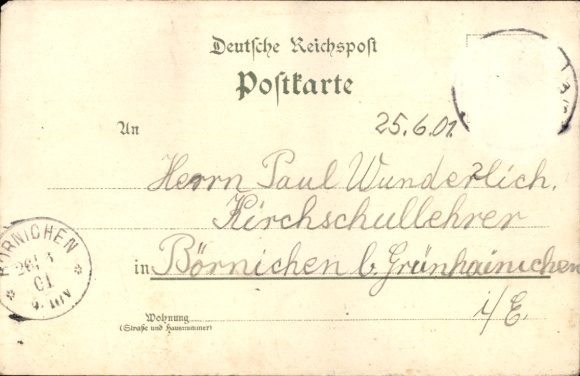 Deutsche Reichspost
Postkarte
An
25.6.01.
Herrn Paul Wunderlich,
Kirchschullehrer
in Börnichen b. Grünhainichen
i/E.
Wohnung
(Straße und Hausnummer)
BÖRNICHEN
26/6
01